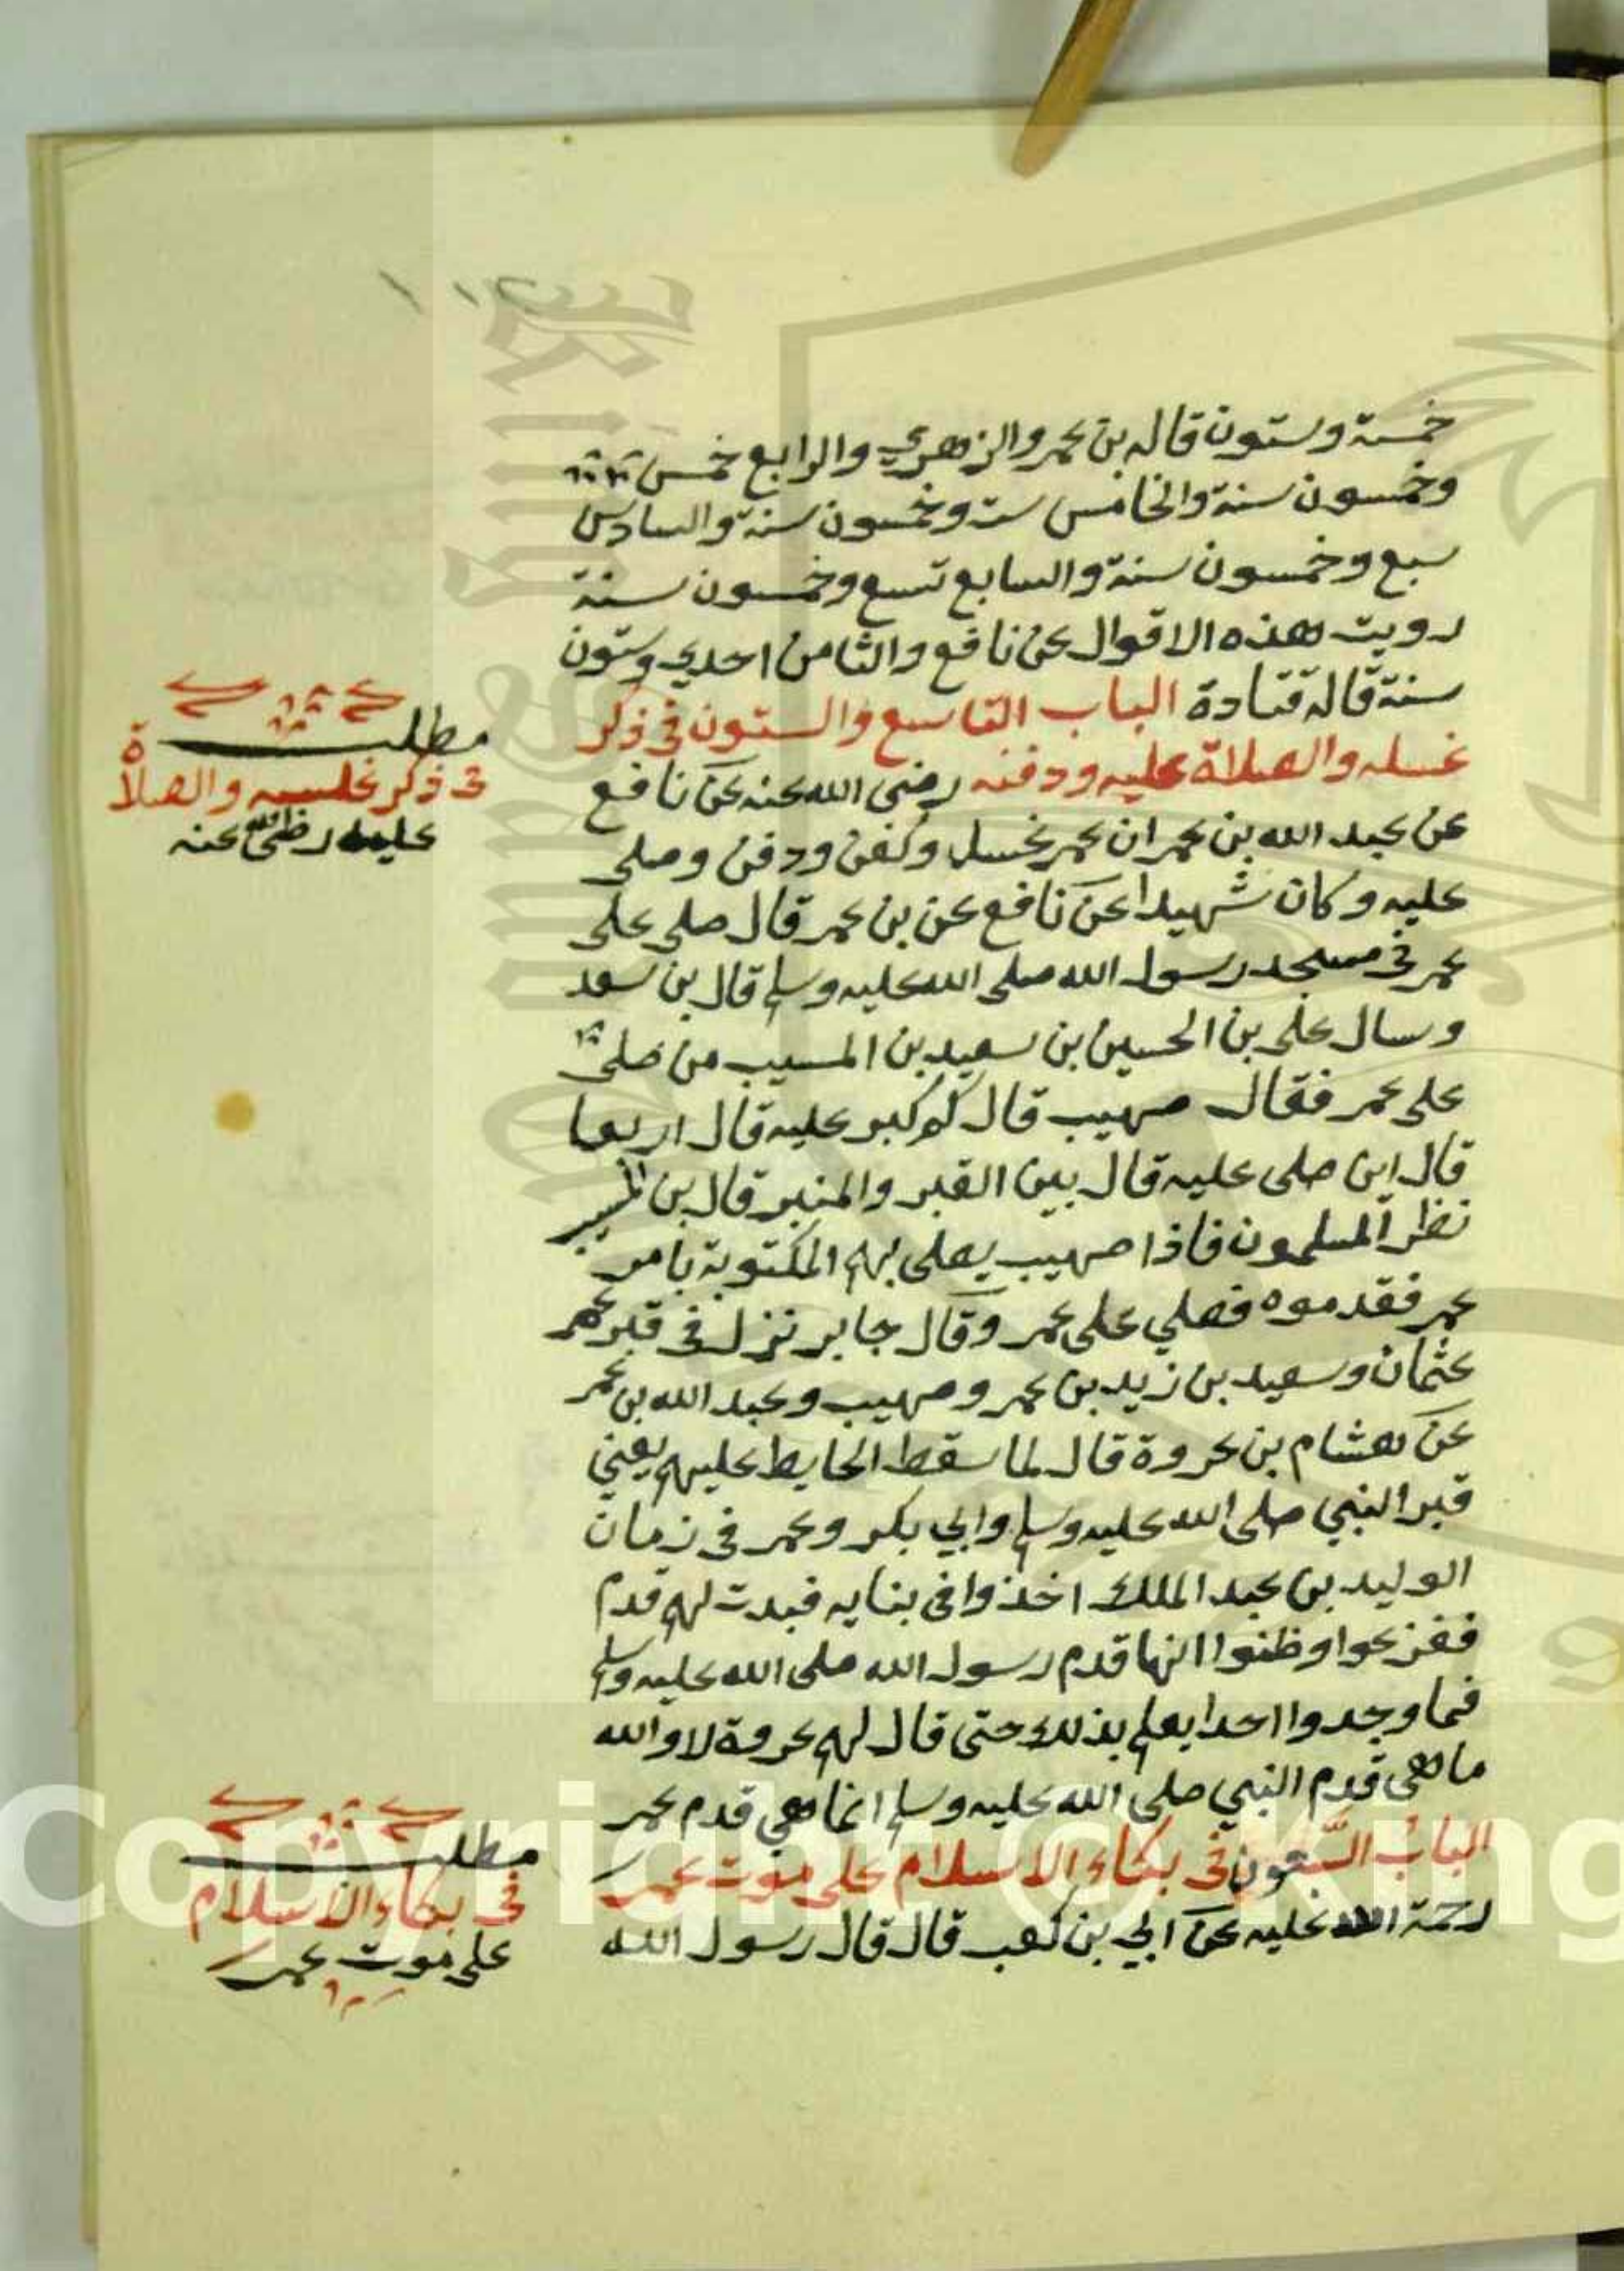 خمسة وستون قاله بن عمر والزهري والرابع خمس
وخمسون سنة والخامس ست وخمسون سنة والسادس
سبع وخمسون سنة والسابع تسع وخمسون سنة
رويت هذه الاقوال عن نافع والثامن احدي وستون
سنة قاله قتادة الباب التاسع والستون في ذكر
غسله والصلاة عليه ودفنه رضي الله عنه عن نافع
عن عبد الله بن عمر ان عمر غسل وكفن ودفن وصلى
عليه وكان شهيدا عن نافع عن بن عمر قال صلى على
عمر في مسجد رسول الله صلى الله عليه وسلم قال بن سعد
وسال على بن الحسين بن سعيد بن المسيب من صلى
على عمر فقال صهيب قال كم كبر عليه قال اربعا
قال اين صلى عليه قال بين القبر والمنبر قال بن المسيب
نظر المسلمون فاذا صهيب يصلى بهم المكتوبة بامر
عمر فقدموه فصلي على عمر وقال جابر نزل في قبر عمر
عثمان وسعيد بن زيد بن عمر وصهيب وعبد الله بن عمر
عن هشام بن عروة قال لما سقط الحايط عليهم يعني
قبر النبي صلى الله عليه وسلم وابي بكر وعمر في زمان
الوليد بن عبد الملك اخذوا في بنايه فبدت لهم قدم
ففزعوا وظنوا انها قدم رسول الله صلى الله عليه وسلم
فما وجدوا احدا يعلم بذلك حتى قال لهم عروة لا والله
ما هى قدم النبي صلى الله عليه وسلم انما هي قدم عمر
الباب السبعون في بكاء الاسلام على موت عمر
رحمة الله عليه عن ابي بن كعب قال قال رسول الله
مطلب
في ذكر غلسه والصلاة
عليه رضى الله عنه
مطلب
في بكاء الاسلام
على موت عمر
Copyright © King